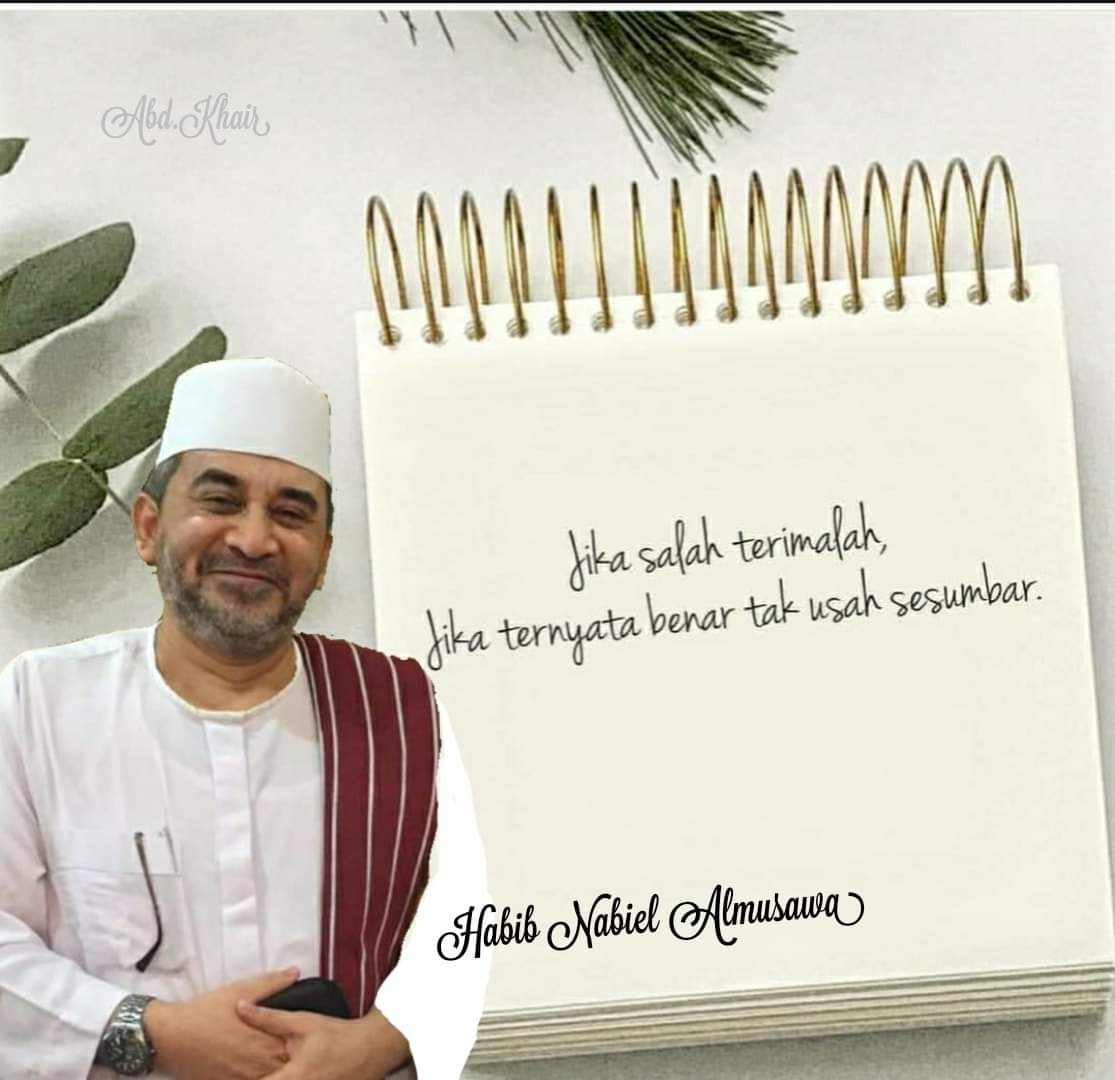 Abd.Khair
Jika salah terimalah,
Jika ternyata benar tak usah sesumbar.
Habib Nabiel Almusawa